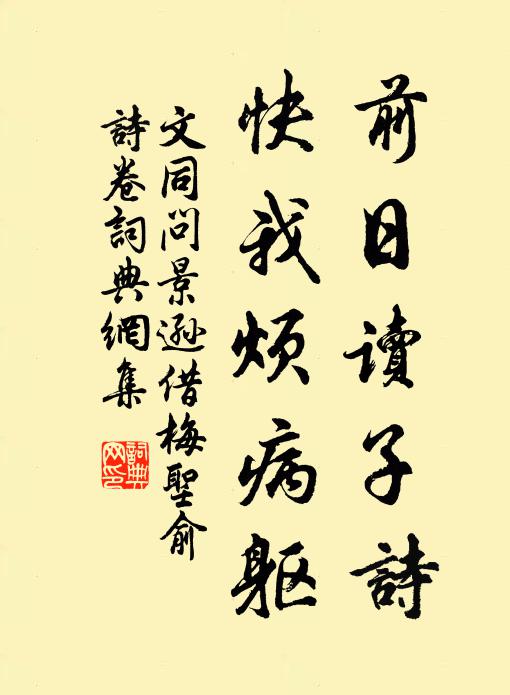 前日讀子詩
快我煩病軀
文同問景遜借梅聖俞
詩卷詞典網集
詞典網印